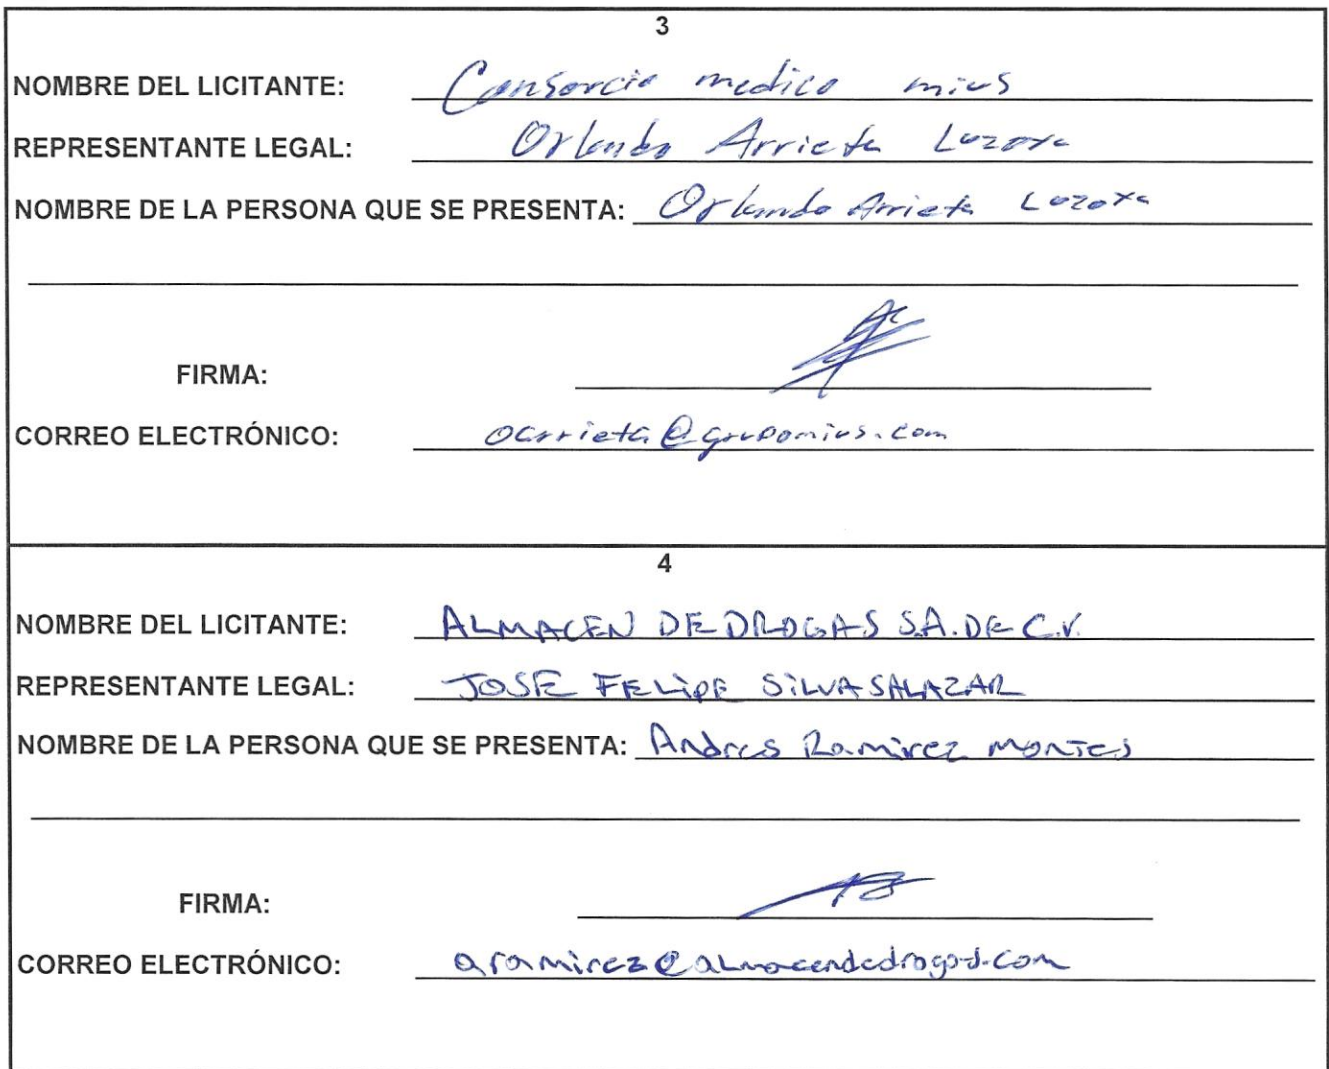 3
NOMBRE DEL LICITANTE: Consorcio medico mius
REPRESENTANTE LEGAL: Orlando Arrieta Lozoya
NOMBRE DE LA PERSONA QUE SE PRESENTA: Orlando Arrieta Lozoya
FIRMA:
CORREO ELECTRÓNICO: oarrieta@grupomius.com
4
NOMBRE DEL LICITANTE: ALMACEN DE DROGAS S.A. DE C.V.
REPRESENTANTE LEGAL: JOSE FELIPE SILVA SALAZAR
NOMBRE DE LA PERSONA QUE SE PRESENTA: Andres Ramirez Montes
FIRMA:
CORREO ELECTRÓNICO: aramirez@almacendedrogas.com